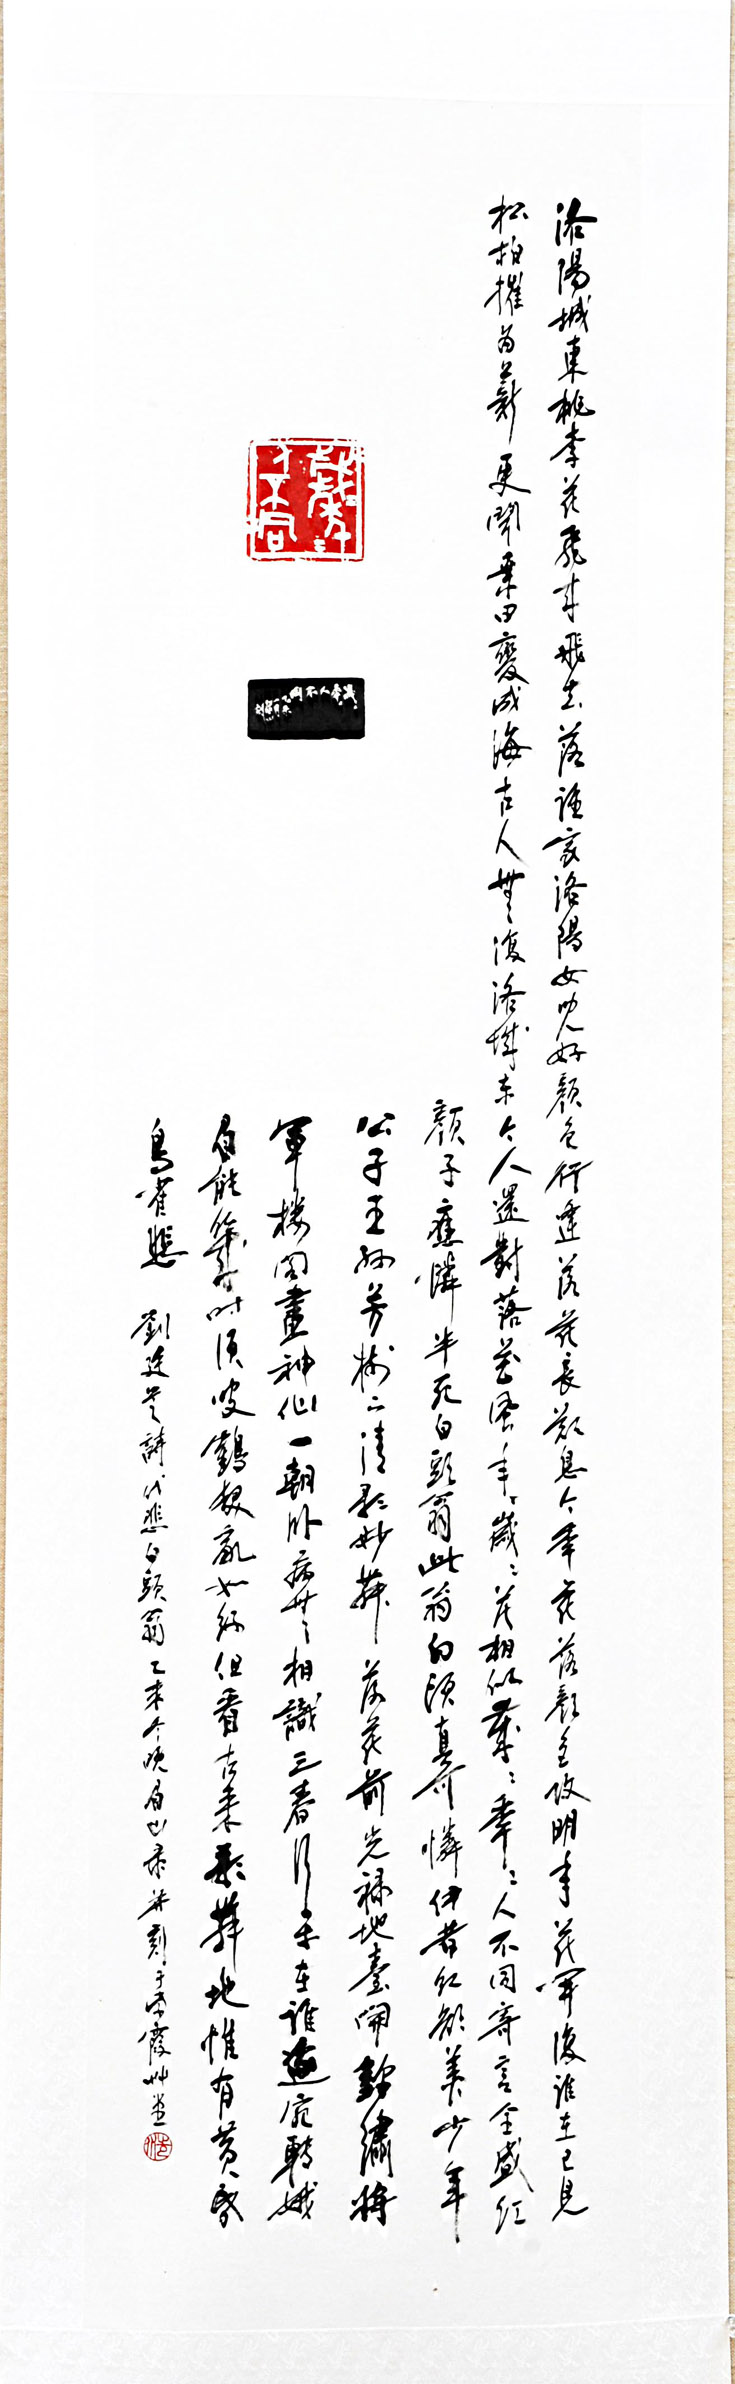 洛陽城東桃李花飛来飛去落誰家洛陽女兒好顏色行逢落花長歎息今年花落顏色改明年花開復誰在已見
松柏摧為薪更聞桑田變成海古人無復洛城東今人還對落花風年々歲々花相似歲々年々人不同寄言全盛紅
顏子應憐半死白頭翁此翁白頭真可憐伊昔紅顏美少年
公子王孫芳樹下清歌妙舞落花前光祿池臺開錦繡將
軍樓閣畫神仙一朝臥病無相識三春行樂在誰邊宛轉娥
眉能幾時須臾鶴髮亂如絲但看古来歌舞地惟有黃昏
鳥雀悲
劉廷芝詩代悲白頭翁乙未今晚眉山录并刻于霞艸堂
人不同